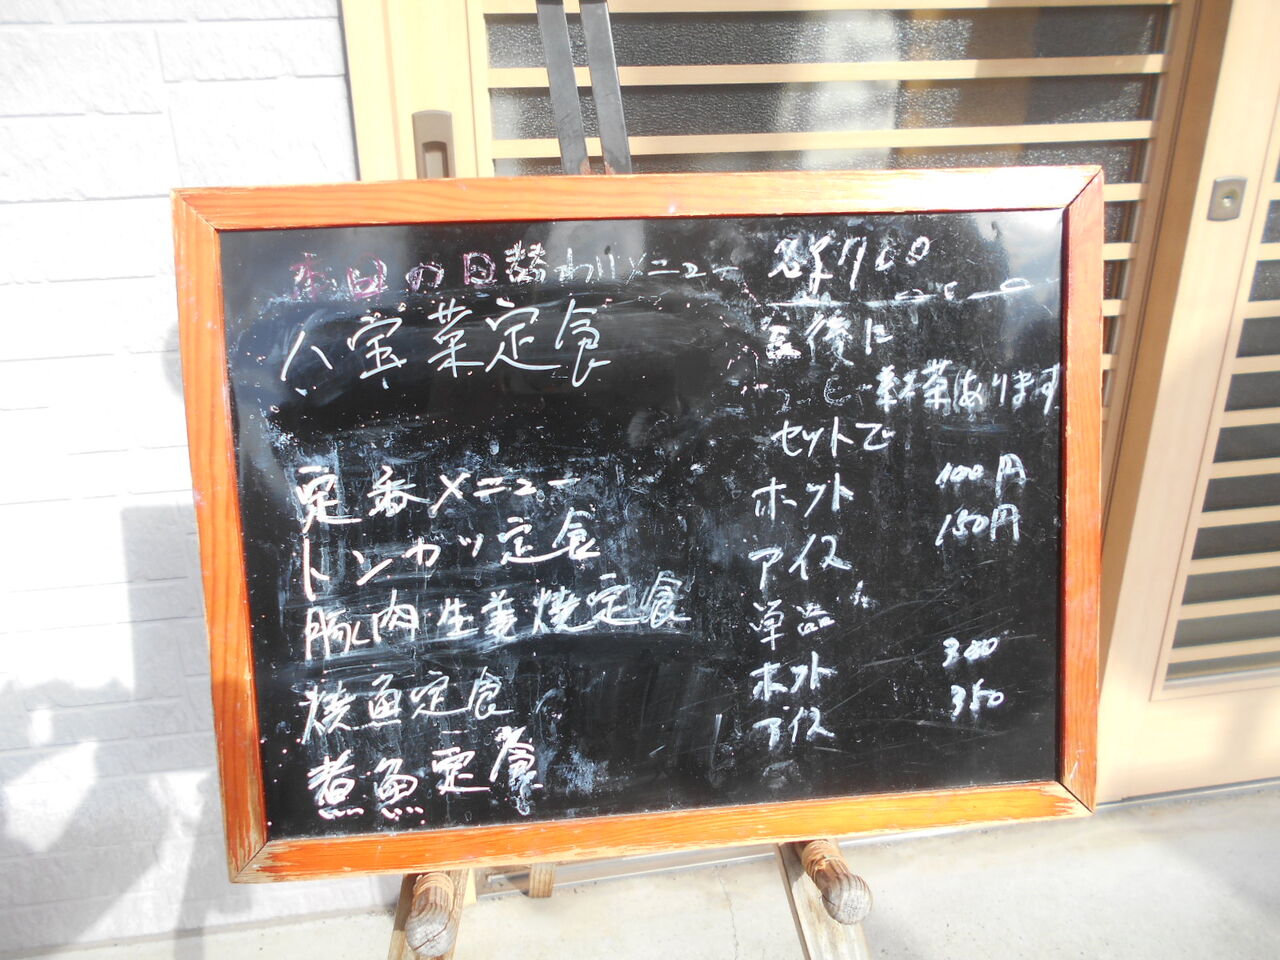 本日の日替わりメニュー
八宝菜定食
定番メニュー
トンカツ定食
豚肉生姜焼定食
焼魚定食
煮魚定食
食後に
コーヒー紅茶あります
セットで
ホット 100円
アイス 150円
単品
ホット 300
アイス 350